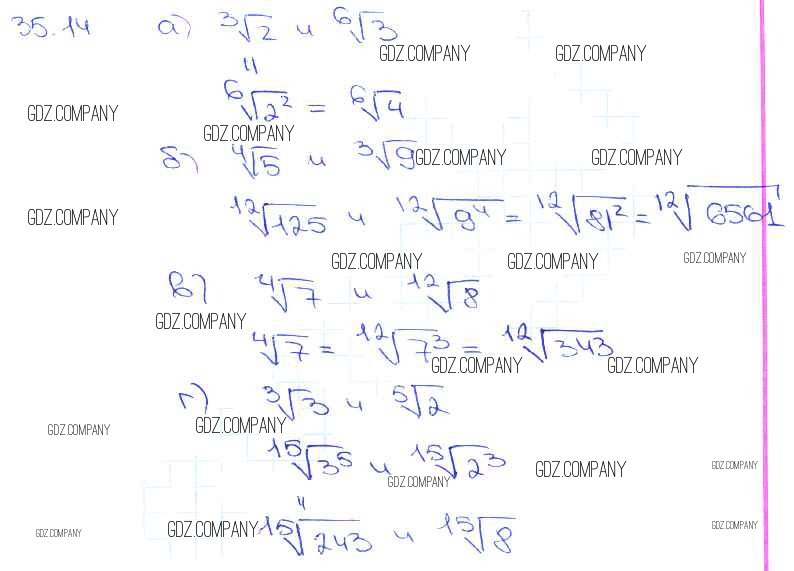 35.14 а) ³√2 и ⁶√3
GDZ.COMPANY GDZ.COMPANY
"
⁶√2² = ⁶√4
GDZ.COMPANY
GDZ.COMPANY
б) ⁴√5 и ³√9
GDZ.COMPANY GDZ.COMPANY
¹²√125 и ¹²√9⁴ = ¹²√81² = ¹²√6561
GDZ.COMPANY
GDZ.COMPANY GDZ.COMPANY GDZ.COMPANY
в) ⁴√7 и ¹²√8
GDZ.COMPANY
⁴√7 = ¹²√7³ = ¹²√343
GDZ.COMPANY GDZ.COMPANY
г) ³√3 и ⁵√2
GDZ.COMPANY GDZ.COMPANY
¹⁵√3⁵ и ¹⁵√2³
GDZ.COMPANY GDZ.COMPANY GDZ.COMPANY
"
¹⁵√243 и ¹⁵√8
GDZ.COMPANY GDZ.COMPANY GDZ.COMPANY